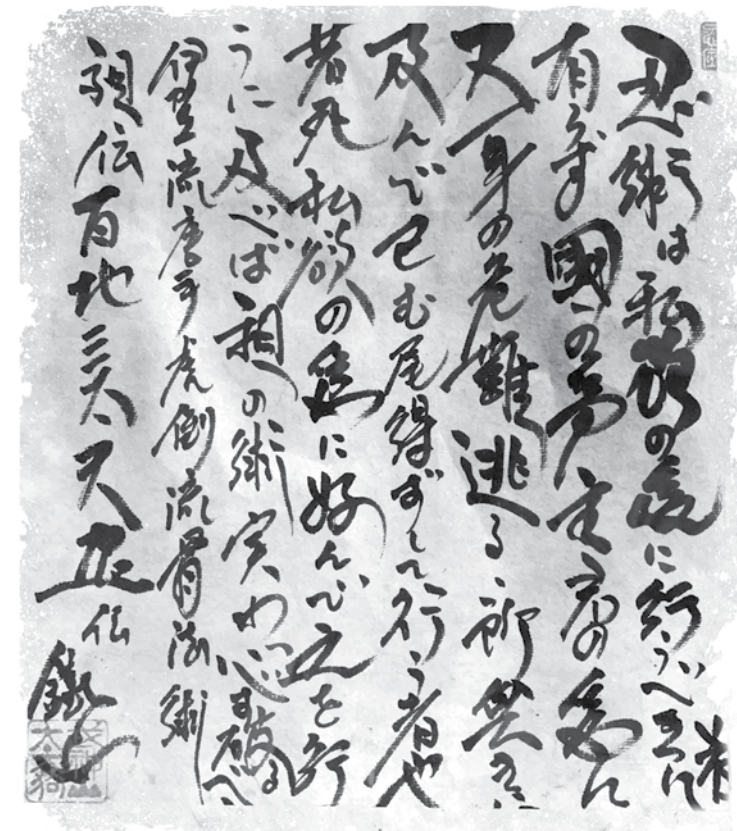 忍術は私欲の為に行うべき者に
有らず國の為主君の為に
又一身の危難逃るゝ無きに
及んで已む尾得ずして行う者也
若死私欲の為に好んで之を行
うに及べば祖の術実わ必ず破るべし
伊賀流唐手虎倒流骨法術
祖伝百地三太夫正伝
鐵山